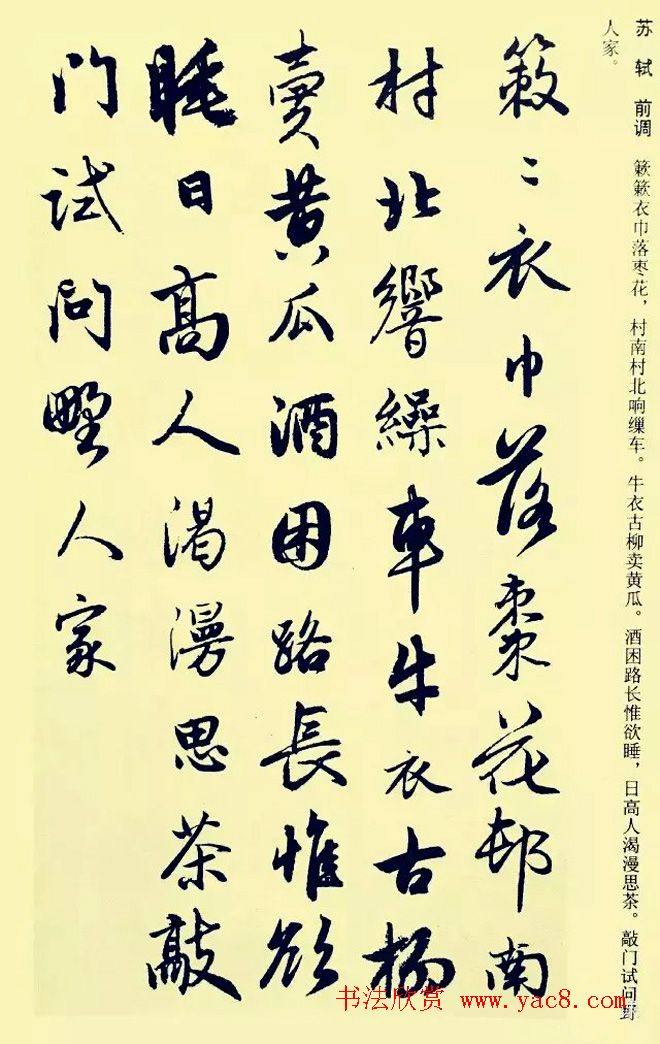 苏 轼 前调 簌簌衣巾落枣花，村南村北响缫车。牛衣古柳卖黄瓜。酒困路长惟欲睡，日高人渴漫思茶。敲门试问野
人家。
簌〻衣巾落棗花邨南
村北響繰車牛衣古楊
賣黄瓜酒困路長惟欲
睡日高人渴漫思茶敲
門試問野人家
书法欣赏 www.yac8.com